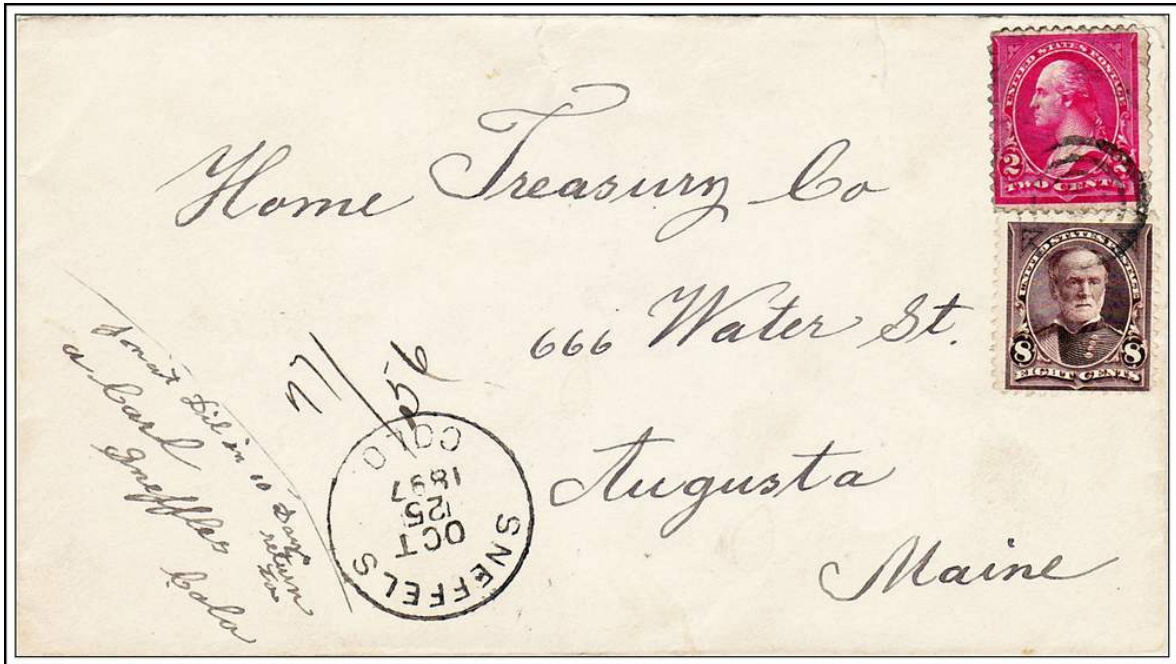 UNITED STATES POSTAGE
2 2
TWO CENTS
UNITED STATES POSTAGE
8 8
EIGHT CENTS
Home Treasury Co
666 Water St.
Augusta
Maine
SNEFFELS
OCT
25
1897
COLO.
in 10 Days
return
to
a Carl
Sneffles Colo